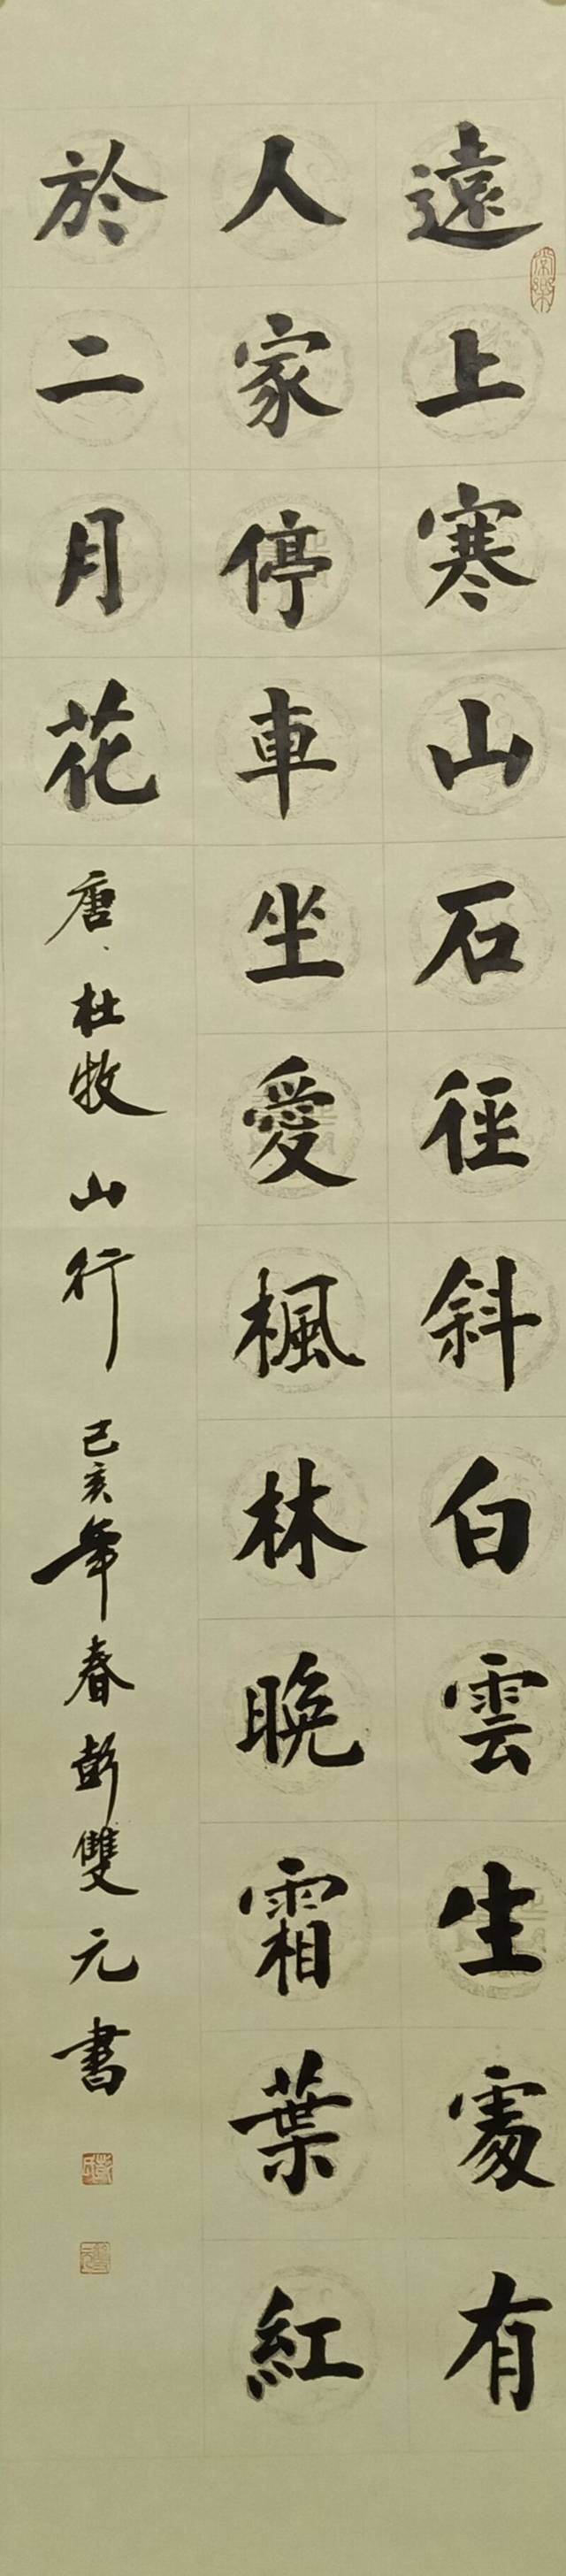 遠上寒山石徑斜白雲生處有
人家停車坐愛楓林晚霜葉紅
於二月花
唐、杜牧山行己亥年春彭雙元書
常樂